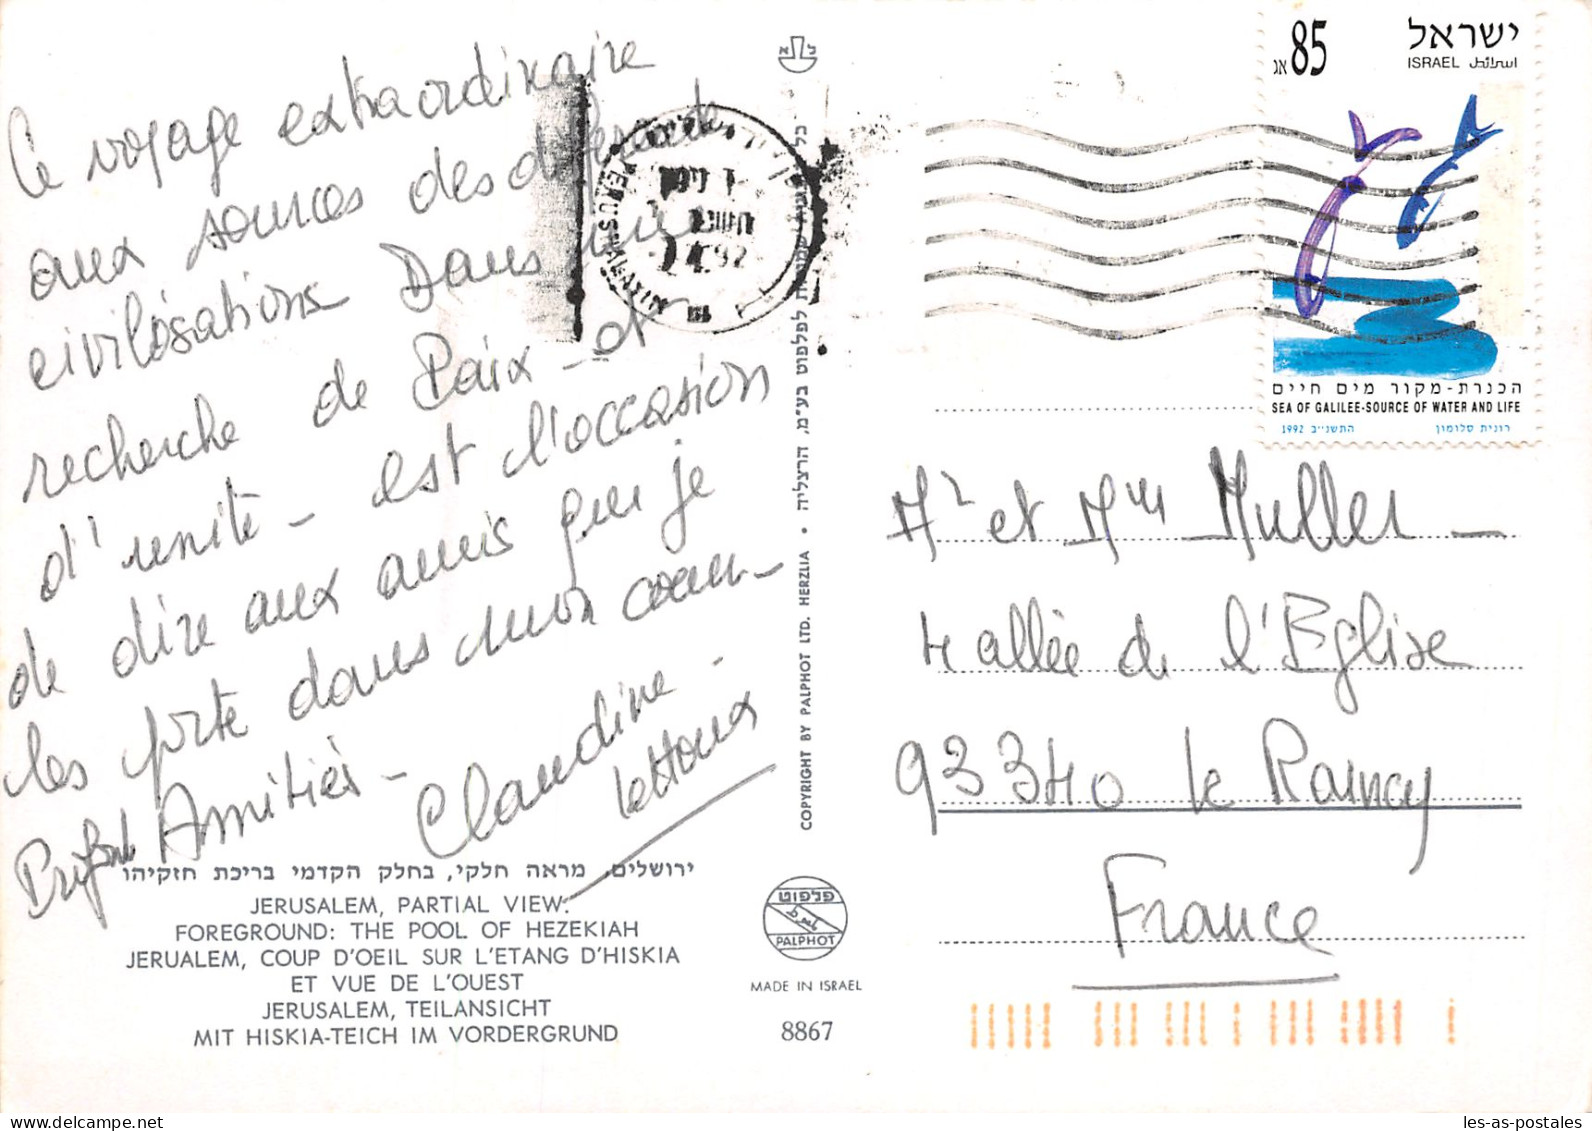 Ce voyage extraordinaire
aux sources des différentes
civilisations Dans une
recherche de Paix - et
d'unité - est l'occasion
de dire aux amis que je
les porte dans mon coeur -
Amitiés -
Claudine
ירושלים, מראה חלקי, בחלק הקדמי בריכת חזקיהו
JERUSALEM, PARTIAL VIEW.
FOREGROUND: THE POOL OF HEZEKIAH
JERUALEM, COUP D'OEIL SUR L'ETANG D'HISKIA
ET VUE DE L'OUEST
JERUSALEM, TEILANSICHT
MIT HISKIA-TEICH IM VORDERGRUND
COPYRIGHT BY PALPHOT LTD. HERZLIA • לפלפוט בע"מ, הרצליה
פלפוט
PALPHOT
MADE IN ISRAEL
8867
85 אג
ישראל
ISRAEL اسرائيل
הכנרת-מקור מים חיים
SEA OF GALILEE-SOURCE OF WATER AND LIFE
1992 התשנ"ב
רונית סלומון
Mr et Mme Muller -
4 allée de l'Eglise
93340 le Raincy
France
les-as-postales
delcampe.net